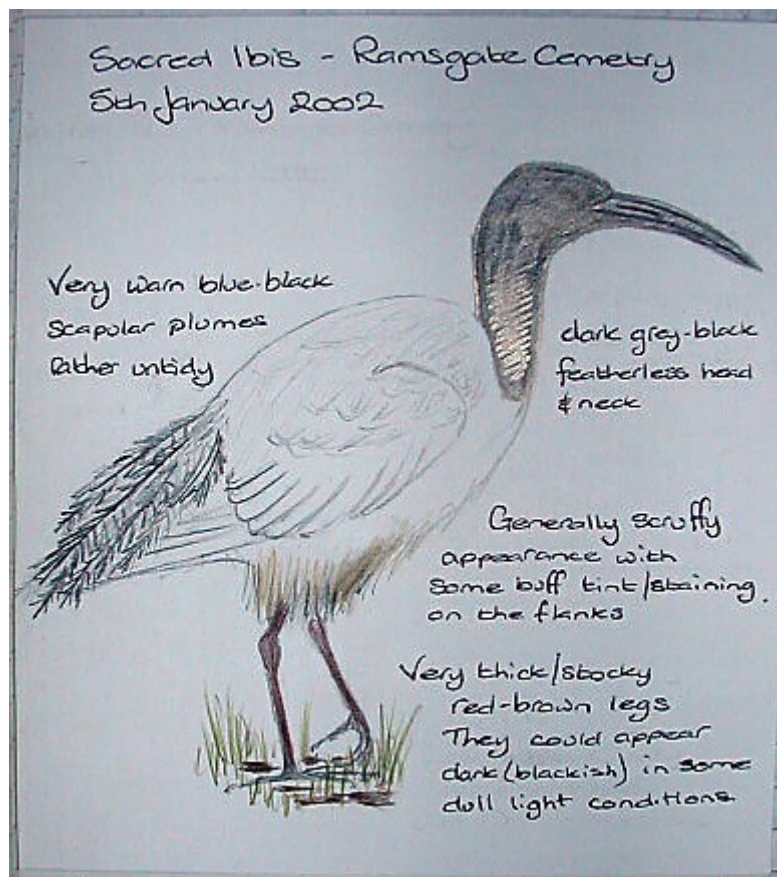 Sacred Ibis - Ramsgate Cemetry
5th January 2002
Very warn blue-black
scapular plumes
Rather untidy
dark grey-black
featherless head
& neck
Generally scruffy
appearance with
some buff tint/staining.
on the flanks
Very thick/stocky
red-brown legs
They could appear
dark (blackish) in some
dull light conditions